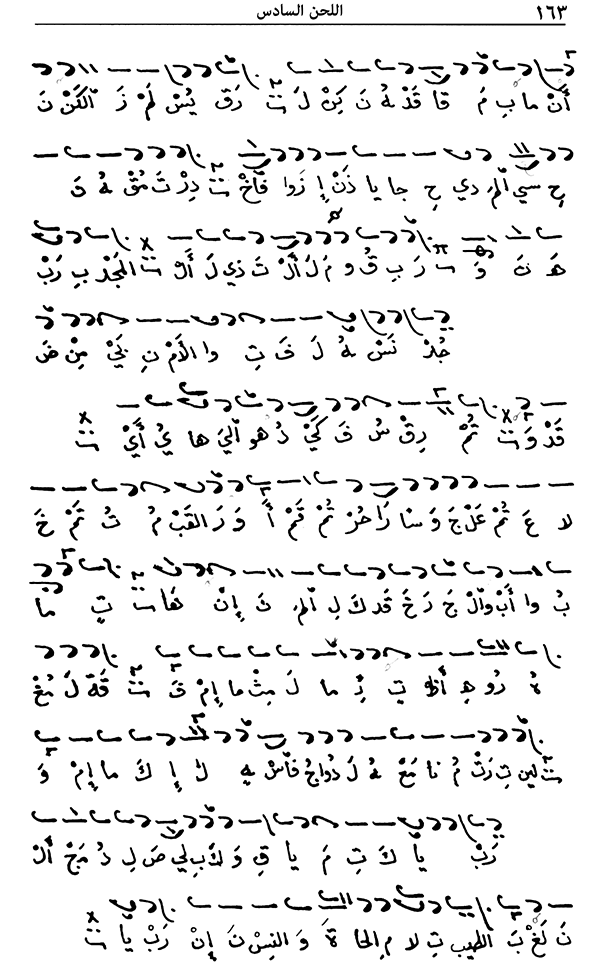 ١٦٣ اللحن السادس
أَنْ ما بِ مَ قا قَدْ هُ نَ كِنْ لَ تْ رَقْ يُسْ لَمْ زَ الكَنْ نَ
حِ سي المْ دي حِ جا يا ذَنْ إِ زَوا فَاخْ تْ دِرْ تَ مُقْ هُ قَ
هَ نَ وَ رَ بِ قُ وَ مَ لَ أَلْ تَ ذي لَ أَلْ تْ المَجْدْ بِ رَبْ
جُنْدْ نَسْ هُ لَ فَ تِ وا الأَمْ نِ يَحْ مِنْ ضَ
قَدْ وَ تْ ثُمْ رِقْ سُ فَ كَيْ ذُ هو اليَ ها يُ أَيْ تْ
لا عَ ثُمْ عَلْ جَ وَ سا رَا حُرْ ثُمْ قَمْ أَ وَ رَ القَبْ مُ تُ تَمْ خَ
بُ وا أَبْ والْ جَ رَ خَ قَد كَ لِ المْ نَ إِنْ تٍ ما
ةُ رُ و هِ تِ ما لَ مِثْ ما إِمْ فَ تْ قَةْ لَ مُغْ
تْ لين تِ رَتْ مُ نا مَعْ هُ لَ دُواجُ فَاسْ لْ إِ كَ ما إِمْ وَ
رَبْ يا كَ تِ مَ يا قِ وَ كَ بِ لي صَ لِ دُ مَجْ أَلْ
نَ لَغْ بَ الطيب تِ لا مِ الحا ةَ وَ النِسْ نَ إِنْ رَبْ يا تْ